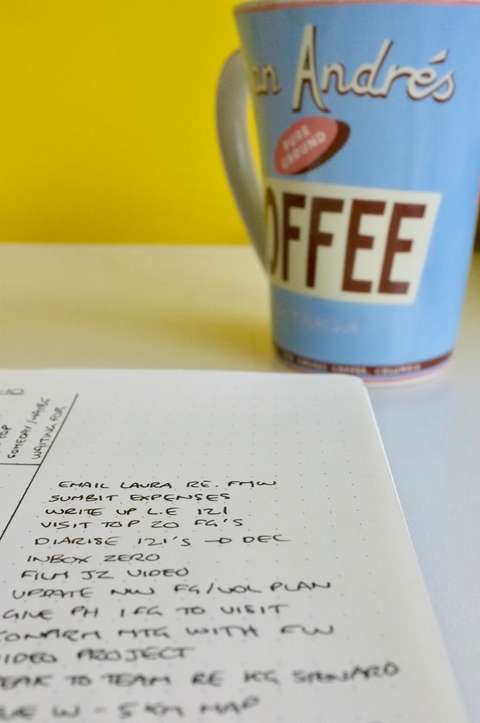 an Andrés
PURE
GROUND
OFFEE
SOMEDAY/MAYBE
WAITING FOR
EMAIL LAURA RE. FMW
SUMBIT EXPENSES
WRITE UP L.E 121
VISIT TOP 20 FG'S
DIARISE 121'S → DEC
INBOX ZERO
FILM JZ VIDEO
UPDATE NW FG/VOL PLAN
GIVE PH 1 FG TO VISIT
CONFIRM MTG WITH FW
VIDEO PROJECT
EAK TO TEAM RE KG
W - 5KM MAP